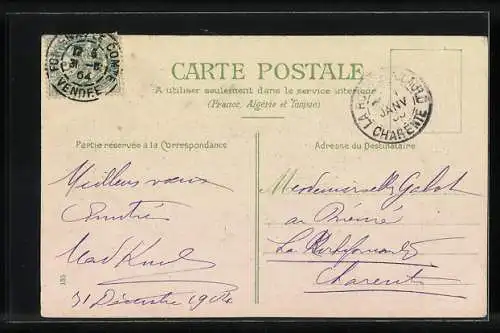 FONTENAY-LE-COMTE
31 -
04
VENDÉE
CARTE POSTALE
A utiliser seulement dans le service intérieur
(France, Algérie et Tunisie)
LA
1
JANV
05
CHARENTE
Partie réservée à la Correspondance
Adresse du Destinataire
Meilleurs vœux
d'amitié
31 Décembre 1904
Mademoiselle
La Rochefoucauld
Charente
135